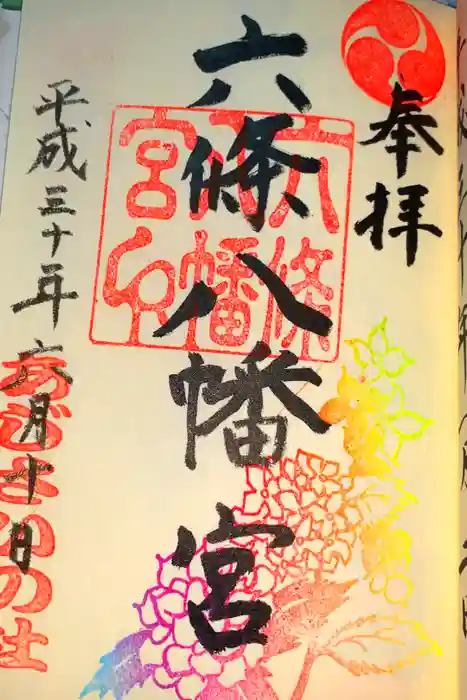 奉拝
六條八幡宮
六條八幡宮印
平成三十年六月十日
あぢさいの社